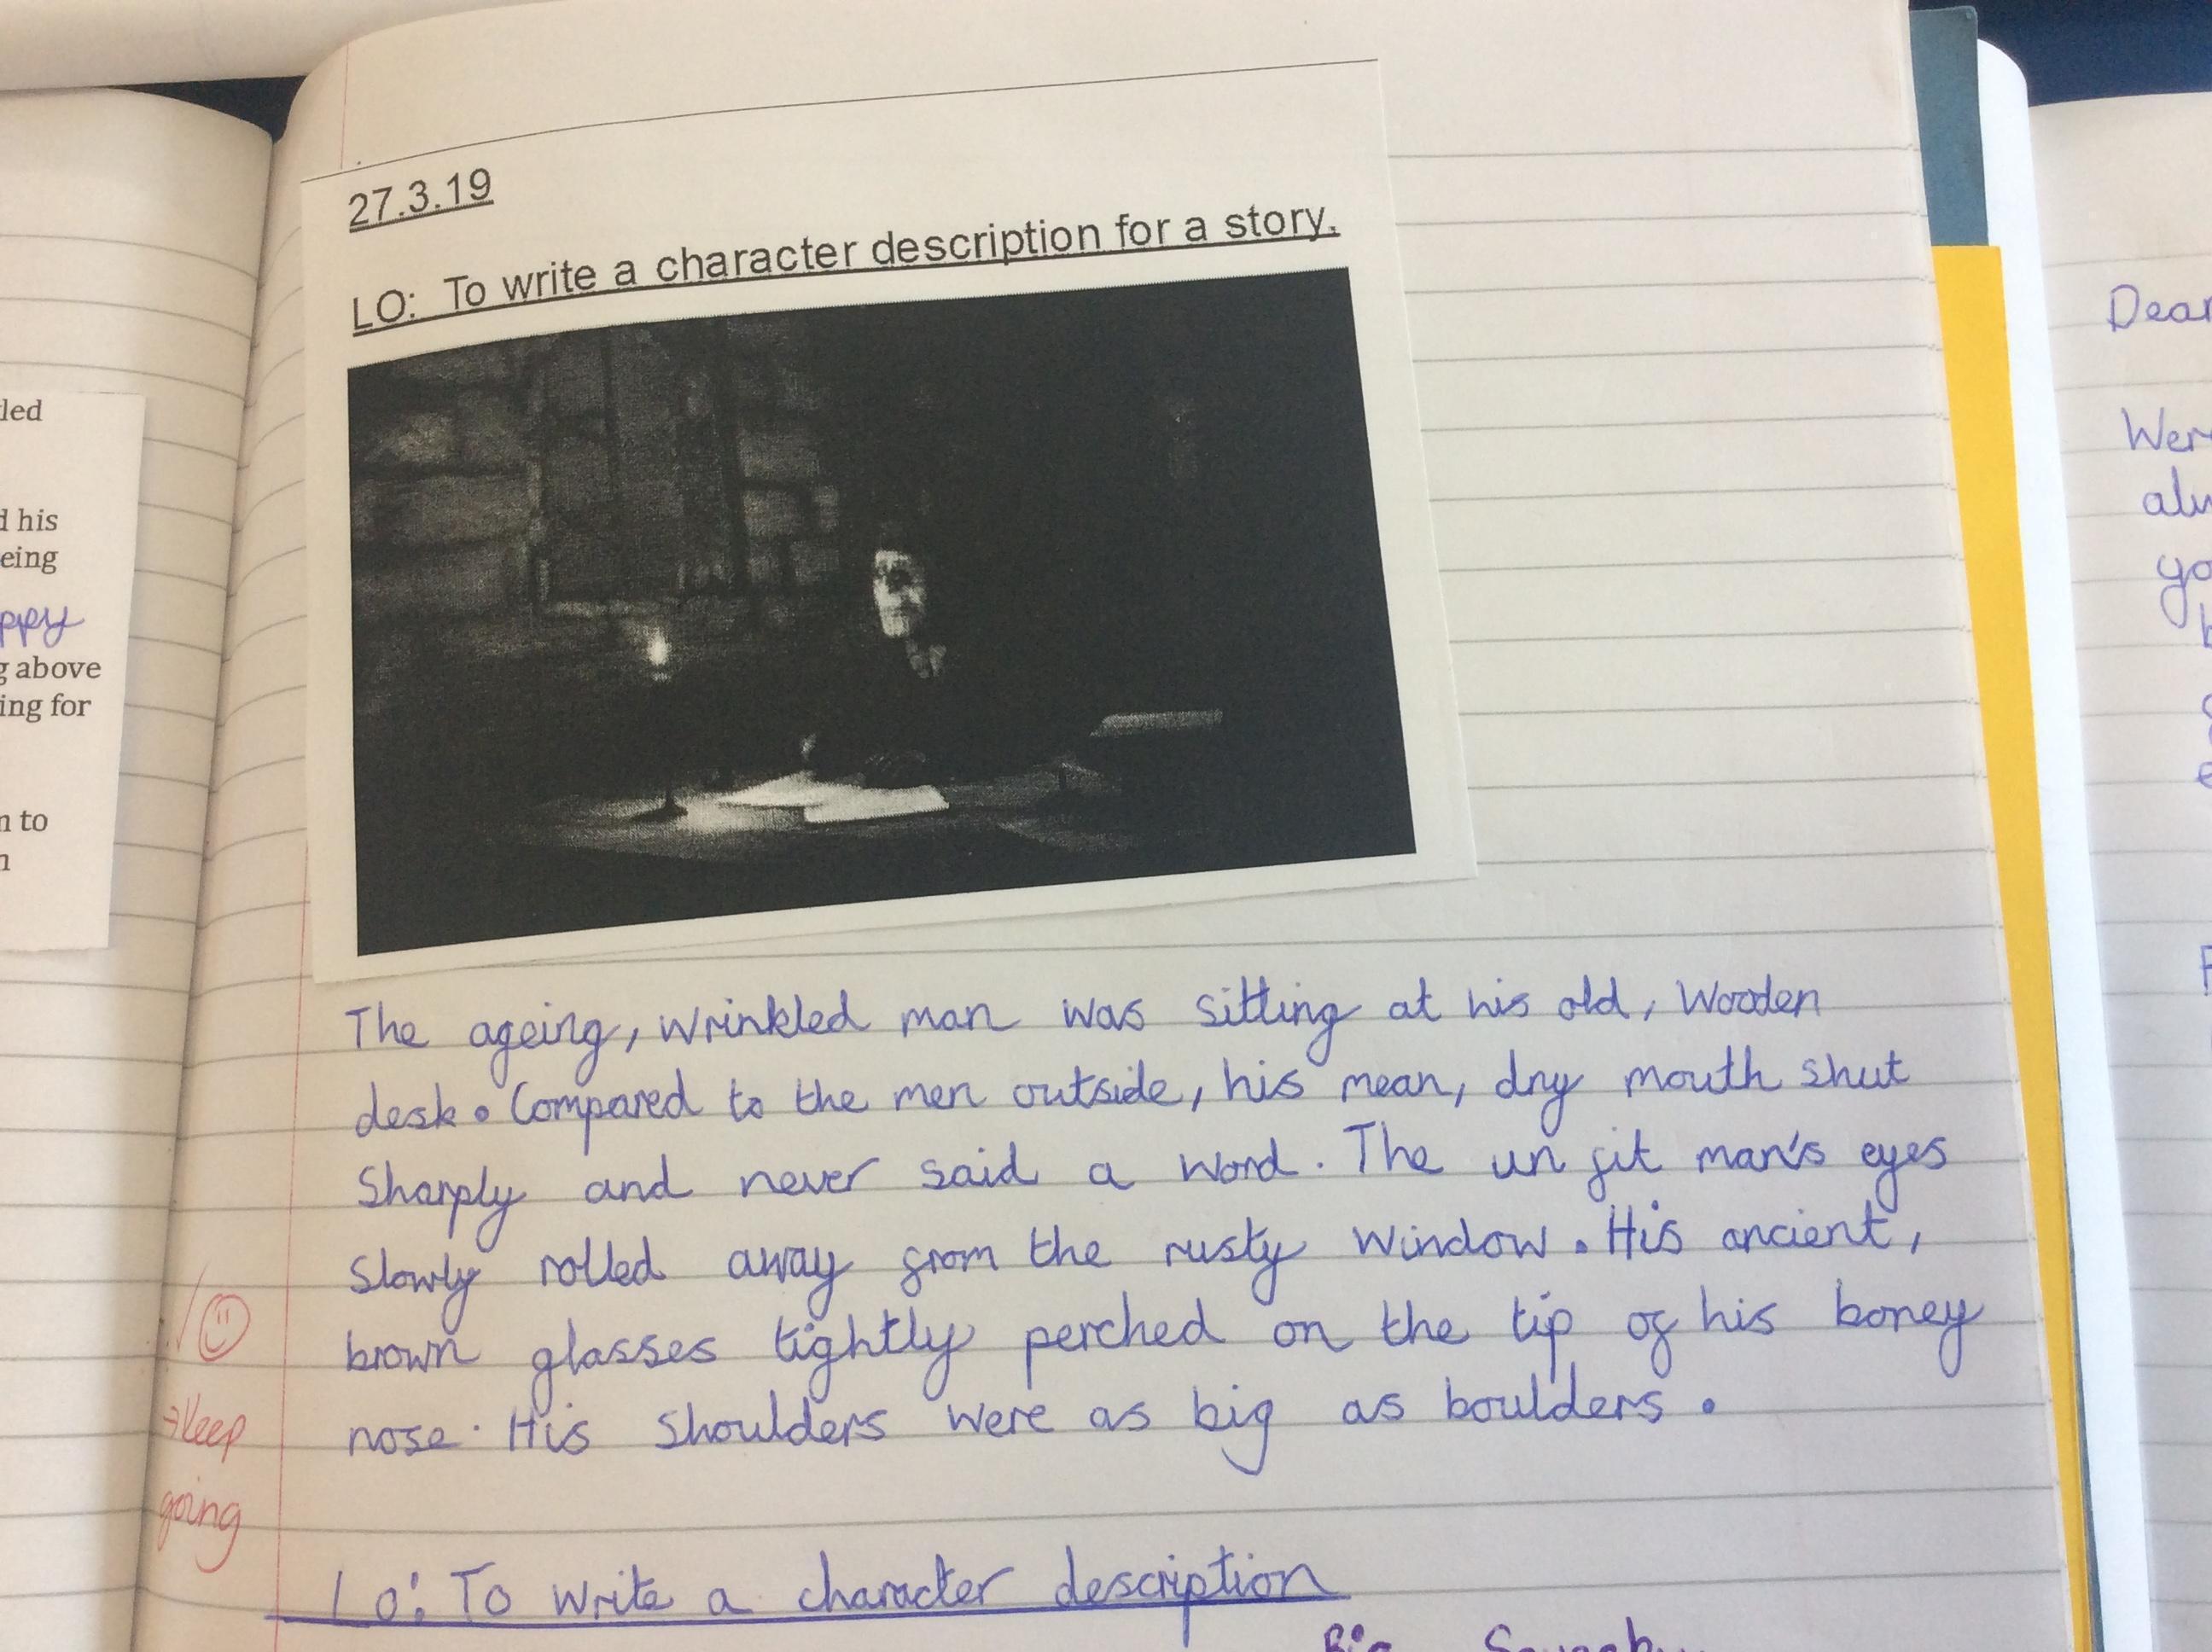 led
his
eing
ppy
above
ing for
to
27.3.19
LO: To write a character description for a story.
The ageing, wrinkled man was sitting at his old, wooden
desk. Compared to the men outside, his mean, dry mouth shut
sharply and never said a word. The un fit man's eyes
slowly rolled away from the rusty window. His ancient,
brown glasses tightly perched on the tip of his boney
nose. His shoulders were as big as boulders.
→Keep
going
Lo: To write a character description
Big
Dear
Wer
alw
yo